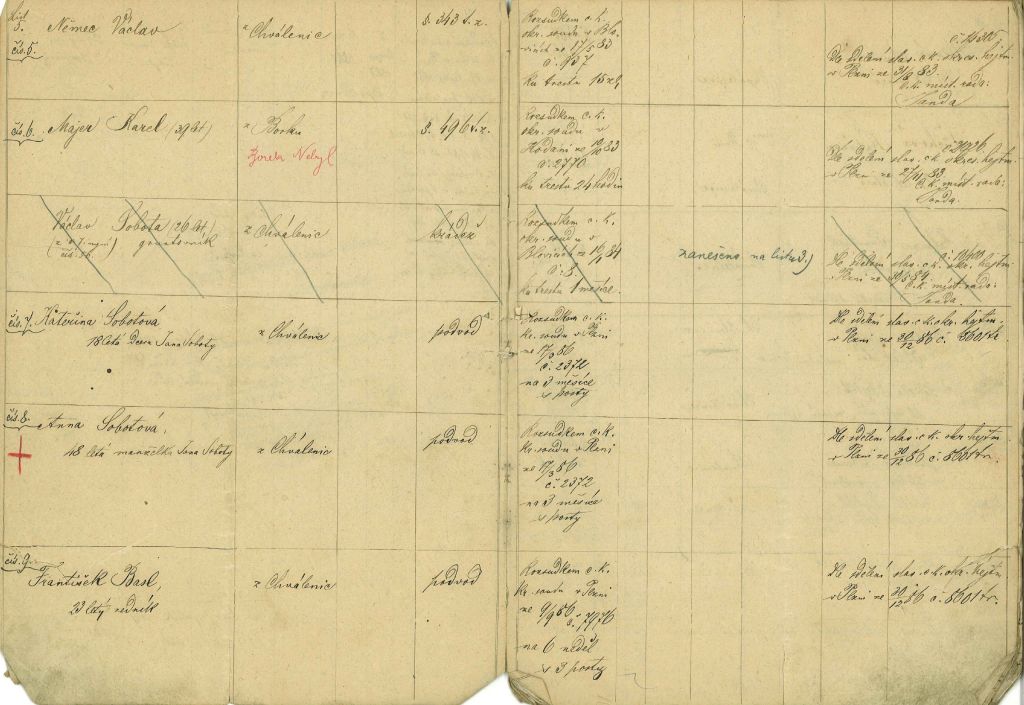 List
5.
čís. 5.
Němec Václav
z Chválenic
§. 343 t. z.
Rozsudkem c. k.
okr. soudu v Blo-
vicích ze 17/5 83
č. 137
ku trestu
Dle sdělení slav. c. k. okres. hejtm.
v Plzni ze 31/8 83.
c. k. míst. rada:
Janda
čís. 6.
Majer Karel (39 let)
z Borku
§. 496 t. z.
Rozsudkem c. k.
okr. soudu v
ze 83
č. 2770
ku trestu 24 hodin
Dle sdělení slav. c. k. okres. hejtm.
v Plzni ze 27/11 83
c. k. míst. rada:
Janda.
Václav Sobota (26 let)
čís. 56.
z Chválenic
krádež
Rozsudkem c. k.
okr. soudu v
Blovicích ze 84
č. 8.
ku trestu 1 měsíce.
zanešeno na listu 3.)
Dle sdělení slav. c. k. okr. hejtm.
v Plzni ze 84
c. k. míst. rada:
Janda.
čís. 7. Kateřina Sobotová
18 letá dcera Jana Soboty
z Chválenic
podvod
Rozsudkem c. k.
kr. soudu v Plzni
ze 17/3 86
č. 2372
na 3 měsíce
s posty
Dle sdělení slav. c. k. okr. hejtm.
v Plzni ze 30/12 86 č. 8601 tr.
čís. 8.
Anna Sobotová,
48 letá manželka Jana Soboty
z Chválenic
podvod
Rozsudkem c. k.
kr. soudu v Plzni
ze 17/3 86
č. 2372
na 3 měsíce
s posty
Dle sdělení slav. c. k. okr. hejtm.
v Plzni ze 30/12 86 č. 8601 tr.
čís. 9.
František Basl,
23 letý
z Chválenic
podvod
Rozsudkem c. k.
kr. soudu v Plzni
ze 9/9 86
č. 7976
na 6 neděl
s 3 posty
Dle sdělení slav. c. k. okr. hejtm.
v Plzni ze 30/12 86 č. 8601 tr.